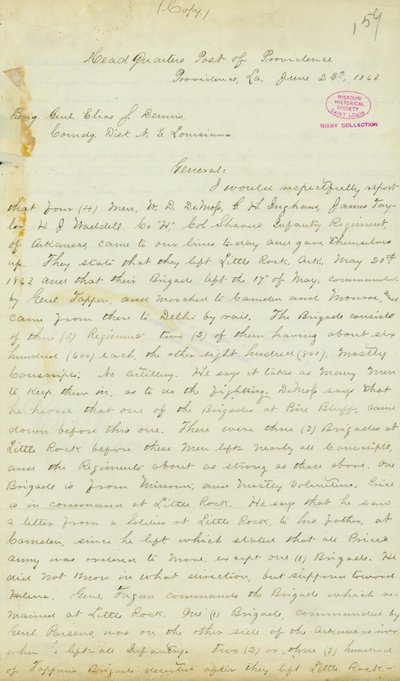 (Copy)
159
Head Quarters Post of Providence
Providence, La, June 23d, 1863
MISSOURI
HISTORICAL
SOCIETY
SAINT LOUIS
BIXBY COLLECTION
Brig. Genl Elias S. Dennis,
Comdg Dist. N. E. Louisiana
General:
I would respectfully report
that four (4) men, W. D. DeMoss, G. H. Ingham, James Tay-
lor H. J. Waddell, Co "H," Col Shaver's Infantry Regiment,
of Arkansas, came to our lines to-day and gave themselves
up. They state that they left Little Rock, Ark, May 20th
1863 and that their Brigade left the 17" of May, commanded
by Genl Tappan, and marched to Camden and Monroe, and
came from there to Delhi by rail. The Brigade consists
of three (3) Regiments two (2) of them having about six
hundred (600) each the other eight hundred (800), mostly
Conscripts; No artillery. He say it takes as many men
to keep them in, as to do the fighting. DeMoss say that
he heard that one of the Brigades at Pine Bluff, came
down before this one. There were three (3) Brigades at
Little Rock before these men left nearly all Conscripts,
and the Regiments about as strong as those above. One
Brigade is from Missouri, and mostly Volunteers. Price
is in command at Little Rock. He say that he saw
a letter from a soldier at Little Rock, to his father, at
Camden, since he left which stated that all Price's
army was ordered to move, except one (1) Brigade. He
did not know in what direction, but supposed toward
Helena. Genl Fagan commands the Brigade which re-
mained at Little Rock. One (1) Brigade, commanded by
Genl Parsons, was on the other side of the Arkansas river
when I left all Infantry. Two (2) or three (3) hundred
of Tappans Brigade deserted after they left Little Rock -